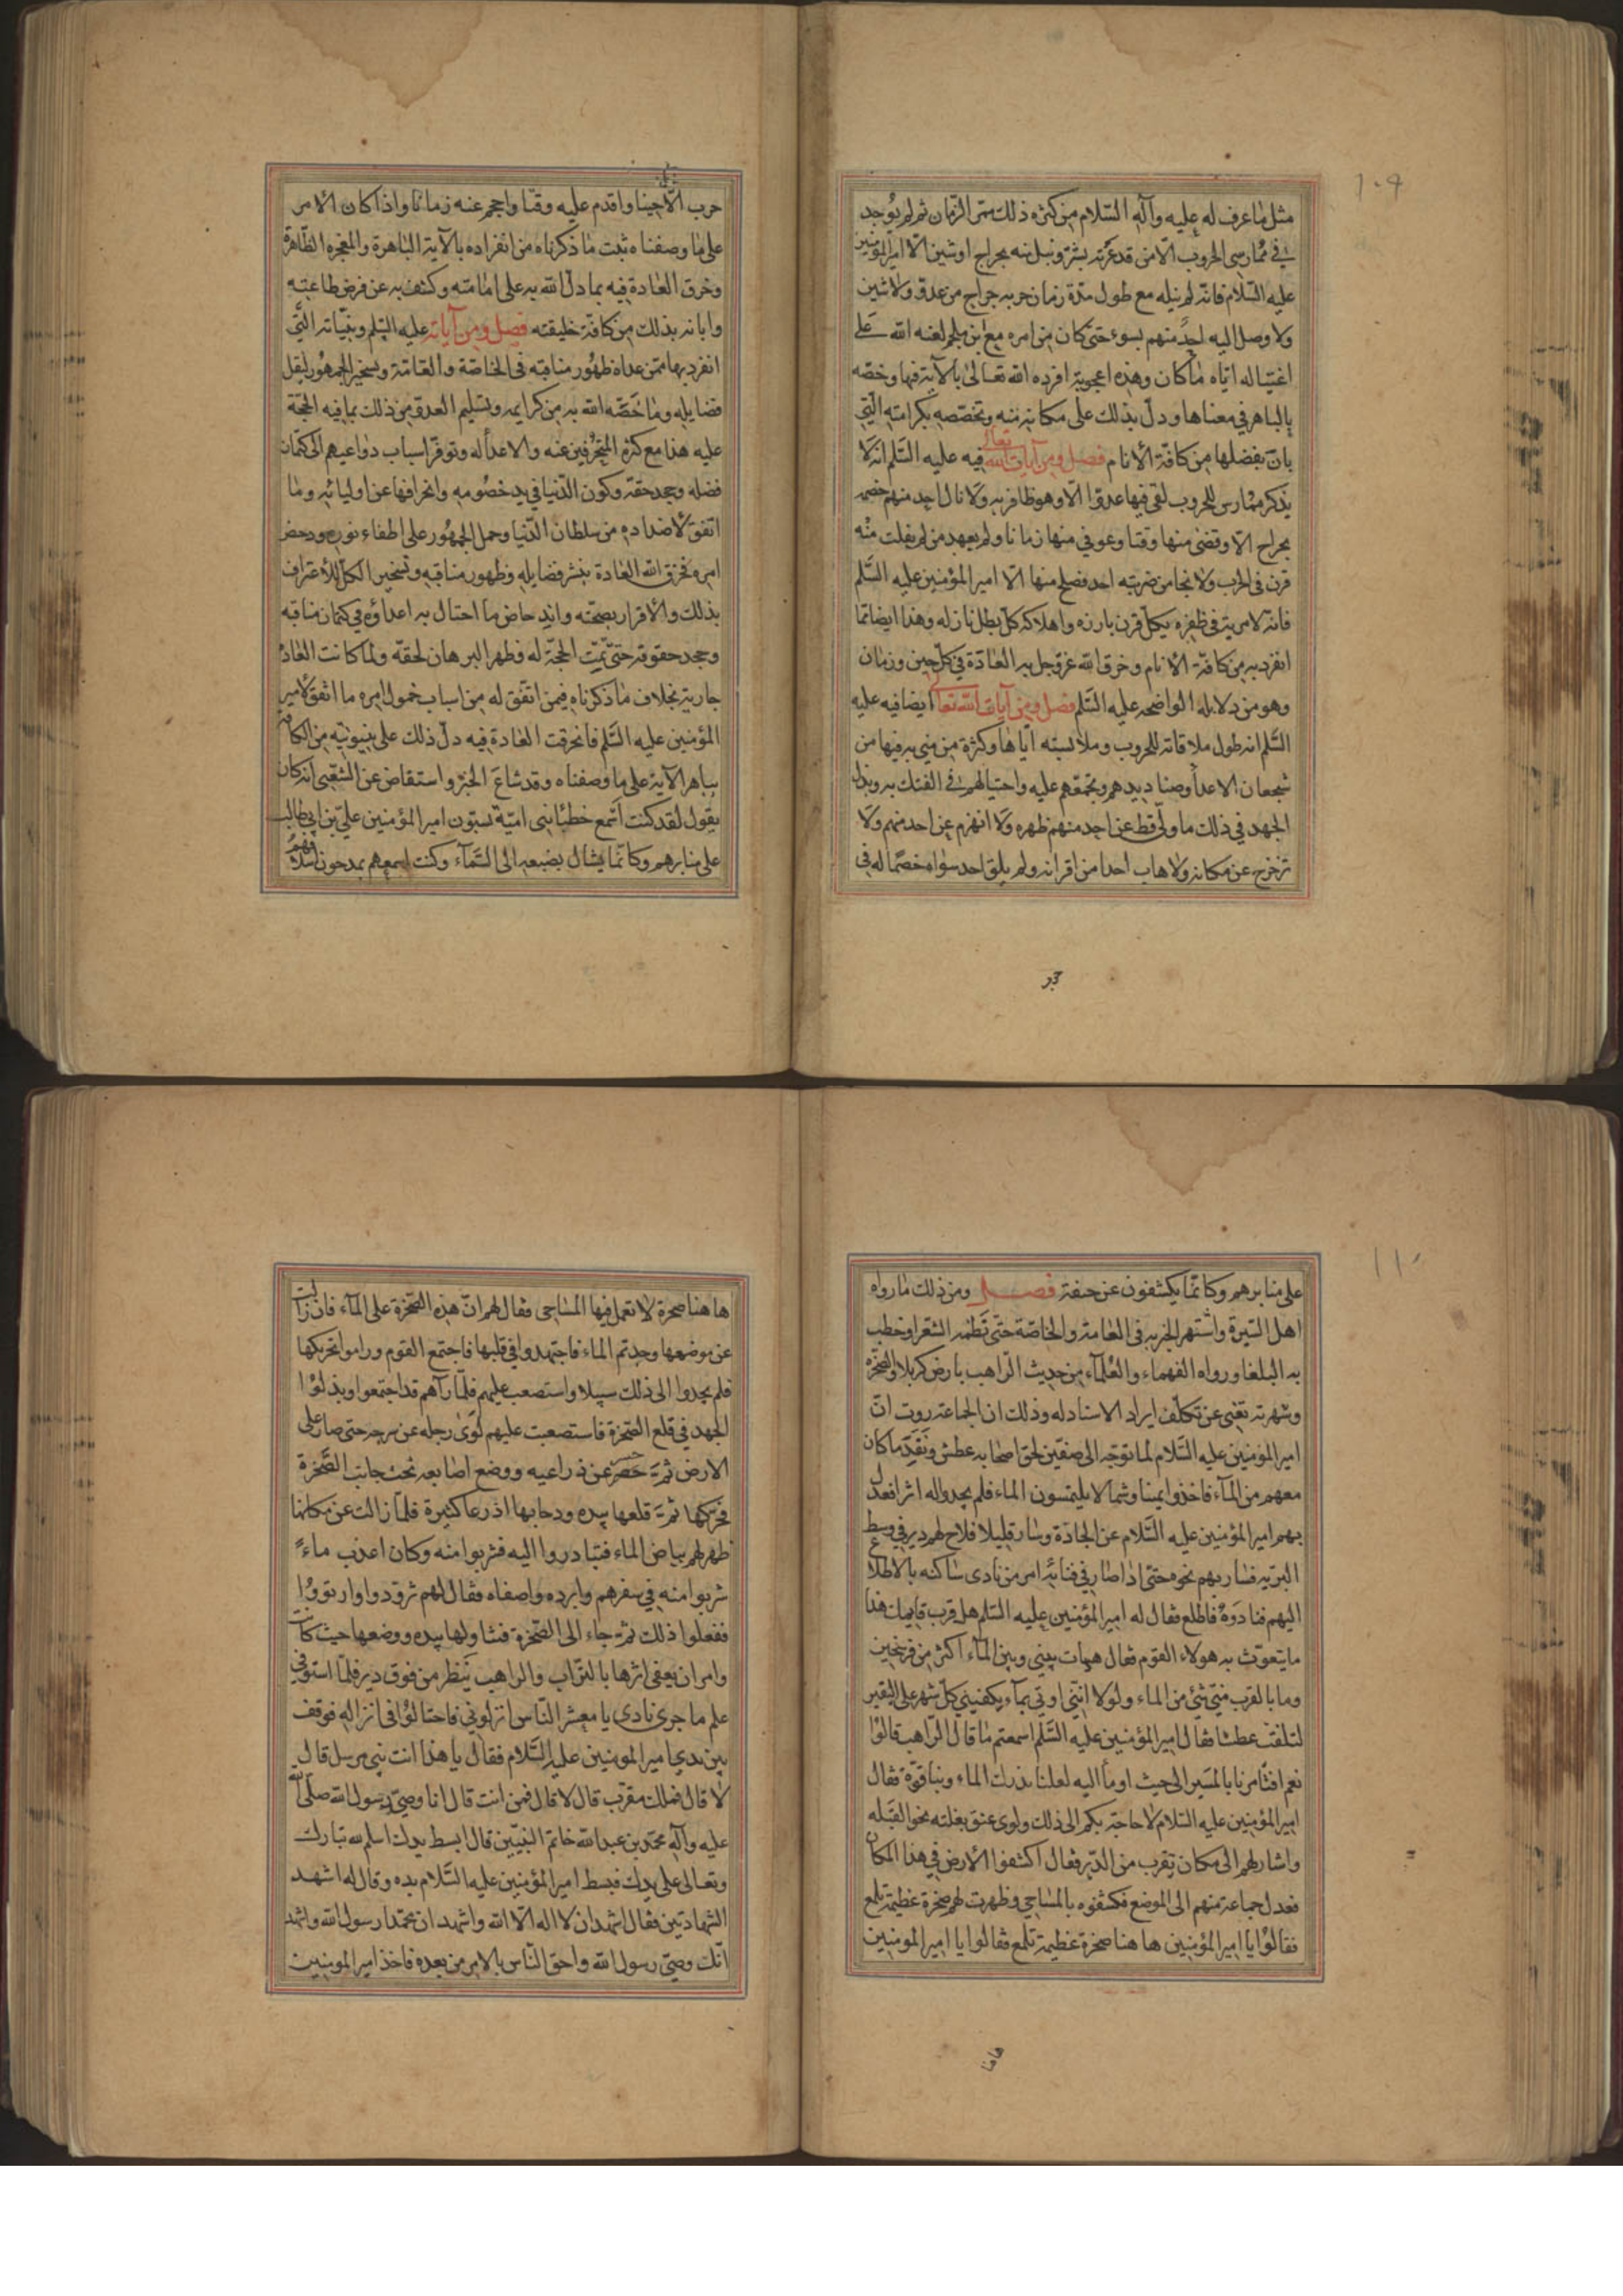 ١٠٩
مثل ما عرف له عليه وآله السّلام من كثرة ذلك ستر الزمان ثم لم يوجد
في ممارسى الحروب الّا من قد عرّته بشرّ ونيل منه بجراح او شين الّا امير المؤمنين
عليه السّلام فانّه لم ينله مع طول مدّة زمان حربه جراح من عدوّ ولا شين
ولا وصل اليه احد منهم بسوء حتّى كان من امره مع ابن ملجم لعنه الله على
اغتياله ايّاه ما كان وهذه اعجوبة افرده الله تعالى بالآية فيها وخصّه
بالباهر في معناها ودلّ بذلك على مكانه منه وتخصّصه بكرامته الّتي
بان بفضلها من كافّة الأنام فصل ومن آيات الله تعالى فيه عليه السّلم انه لا
يذكر ممارس للحروب لقى فيها عدوّا الّا وهو ظافر به ولا نال احد منهم خصمه
بجراح الّا وقضى منها وقتا وعوفي منها زمانا ولم يعهد من لم يفلت منه
قرن في الحرب ولا نجا من ضربته احد فصلح منها الّا امير المؤمنين عليه السّلم
فانّه لا مرية في ظفره بكلّ قرن بارزه واهلاكه كلّ بطل نازله وهذا ايضا ممّا
انفرد به من كافّة الأنام وخرق الله عزّ وجل به العادة في كلّ حين وزمان
وهو من دلايله الواضحه عليه السّلم فصل ومن آيات الله تعالى ايضا فيه عليه
السّلم انه طول ملاقاته للحروب وملابسته ايّاها وكثرة من مني به فيها من
شجعان الاعدأ وصناديدهم وتجمّعهم عليه واحتيالهم في الفتك به وبذل
الجهد في ذلك ما ولّى قط عن احد منهم ظهره ولا انهزم عن احد منهم ولا
تزحزح عن مكانه ولا هاب احدا من اقرانه ولم يلق احد سواه خصما له في
حرب الّا حينا واقدم عليه وقتا واحجم عنه زمانا واذا كان الأمر
على ما وصفناه ثبت ما ذكرناه من انفراده بالآية الباهرة والمعجزه الظّاهرة
وخرق العادة فيه بما دلّ الله به على امامته وكشف به عن فرض طاعته
وابانه بذلك من كافّة خليقته فصل ومن آياته عليه السّلم وبيّناته الّتي
انفرد بها ممّن عداه ظهور مناقبه في الخاصّة والعامّة وتسخير الجمهور لنقل
فضايله وما خصّه الله به من كرايمه وتسليم العدوّ من ذلك بما فيه الحجّة
عليه هذا مع كثرة المنحرفين عنه والاعدأ له وتوفّر اسباب دواعيهم الى كتمان
فضله وجحد حقّه وكون الدّنيا في يد خصومه وانحرافها عن اوليائه وما
اتفق لأضداده من سلطان الدّنيا وحمل الجمهور على اطفاء نوره ودحض
امره فخرق الله العادة بنشر فضايله وظهور مناقبه وتسخير الكلّ للاعتراف
بذلك والأقرار بصحّته واندحاض ما احتال به اعداؤه في كتمان مناقبه
وجحد حقوقه حتّى تمّت الحجّة له وظهر البرهان لحقّه ولما كانت العادة
جارية بخلاف ما ذكرناه فيمن اتّفق له من اسباب خمول امره ما اتّفق لأمير
المؤمنين عليه السّلم فانخرقت العادة فيه دلّ ذلك على بينونته من الكافة
بباهر الآية على ما وصفناه وقد شاع الخبر واستفاض عن الشّعبى انّه كان
يقول لقد كنت اسمع خطبا بنى اميّة يسبّون امير المؤمنين عليّ بن ابي طالب
على منابرهم وكانّما يشال بضبعه الى السّمآء وكنت اسمعهم يمدحون اسلافهم
١١٠
على منابرهم وكانّما يكشفون عن جيفة فصل ومن ذلك ما رواه
اهل السّيرة واشتهر الخبر به في العامة والخاصّة حتّى نظمه الشّعرا وخطب
به البلغا ورواه الفهماء والعلمآء من حديث الرّاهب بارض كربلا والصّخرة
وشهرته تغنى عن تكلّف ايراد الاسناد له وذلك ان الجماعة روت انّ
امير المؤمنين عليه السّلام لما توجّه الى صفّين لحق اصحابه عطش ونفد ما كان
معهم من المآء فاخذوا يمينا وشمالا يلتمسون الماء فلم يجدوا له اثرا فعدل
بهم امير المؤمنين عليه السّلام عن الجادّة وسار قليلا فلاح لهم دير في وسط
البرّية فسار بهم نحوه حتى اذا صار في فنائه امر من نادى ساكنه بالاطلاع
اليهم فنادوه فاطلع فقال له امير المؤمنين عليه السّلم هل قرب قايمك هذا
ما يتغوّث به هولاء القوم فقال هيهات بيني وبين المآء اكثر من فرسخين
وما بالقرب منّي شئ من الماء ولولا انّني اوتي بمآء يكفيني كلّ شهر على التقتير
لتلفت عطشا فقال امير المؤمنين عليه السّلم اسمعتم ما قال الرّاهب قالوا
نعم افتأمرنا بالمسير الى حيث اومأ اليه لعلنا ندرك الماء وبنا قوّة فقال
امير المؤمنين عليه السّلام لا حاجة بكم الى ذلك ولوى عنق بغلته نحو القبله
واشار لهم الى مكان يقرب من الدّير فقال اكشفوا الأرض في هذا المكان
فعدل جماعة منهم الى الموضع فكشفوه بالمساحي وظهرت لهم صخرة عظيمة تلمع
فقالوا يا امير المؤمنين ها هنا صخرة عظيمة تلمع فقالوا يا امير المؤمنين
ها هنا صخرة لا تعمل فيها المساحى فقال لهم انّ هذه الصّخرة على المآء فان زالت
عن موضعها وجدتم الماء فاجتهدوا في قلبها فاجتمع القوم وراموا تحريكها
فلم يجدوا الى ذلك سبيلا واستصعب عليهم فلمّا رآهم قد اجتمعوا وبذلوا
الجهد في قلع الصّخرة فاستصعبت عليهم لوى رجله عن سرجه حتى صار على
الارض ثمّ حسر عن ذراعيه ووضع اصابعه تحت جانب الصّخرة
فحرّكها ثمّ قلعها بيده ودحا بها اذرعا كثيرة فلمّا زالت عن مكانها
ظهر لهم بياض الماء فتبادروا اليه فشربوا منه وكان اعذب ماء
شربوا منه في سفرهم وابرده واصفاه فقال لهم تزوّدوا وارتووا
ففعلوا ذلك ثمّ جاء الى الصّخرة فتناولها بيده ووضعها حيث كانت
وامر ان يعفى اثرها بالتراب والراهب ينظر من فوق دير فلمّا استوفى
علم ما جرى نادى يا معشر النّاس انزلوني فاحتالوا في انزاله فوقف
بين يدي امير المومنين عليه السّلام فقال يا هذا انت نبي مرسل قال
لا قال فملك مقرّب قال لا قال فمن انت قال انا وصيّ رسول الله صلّى الله
عليه وآله محمّد بن عبدالله خاتم النبيّين قال ابسط يدك اسلم لله تبارك
وتعالى على يدك فبسط امير المؤمنين عليه السّلام يده وقال له اشهد
الشهادتين فقال اشهد ان لا اله الّا الله واشهد ان محمّدا رسول الله واشهد
انّك وصيّ رسول الله واحق النّاس بالامر من بعده فاخذ امير المومنين